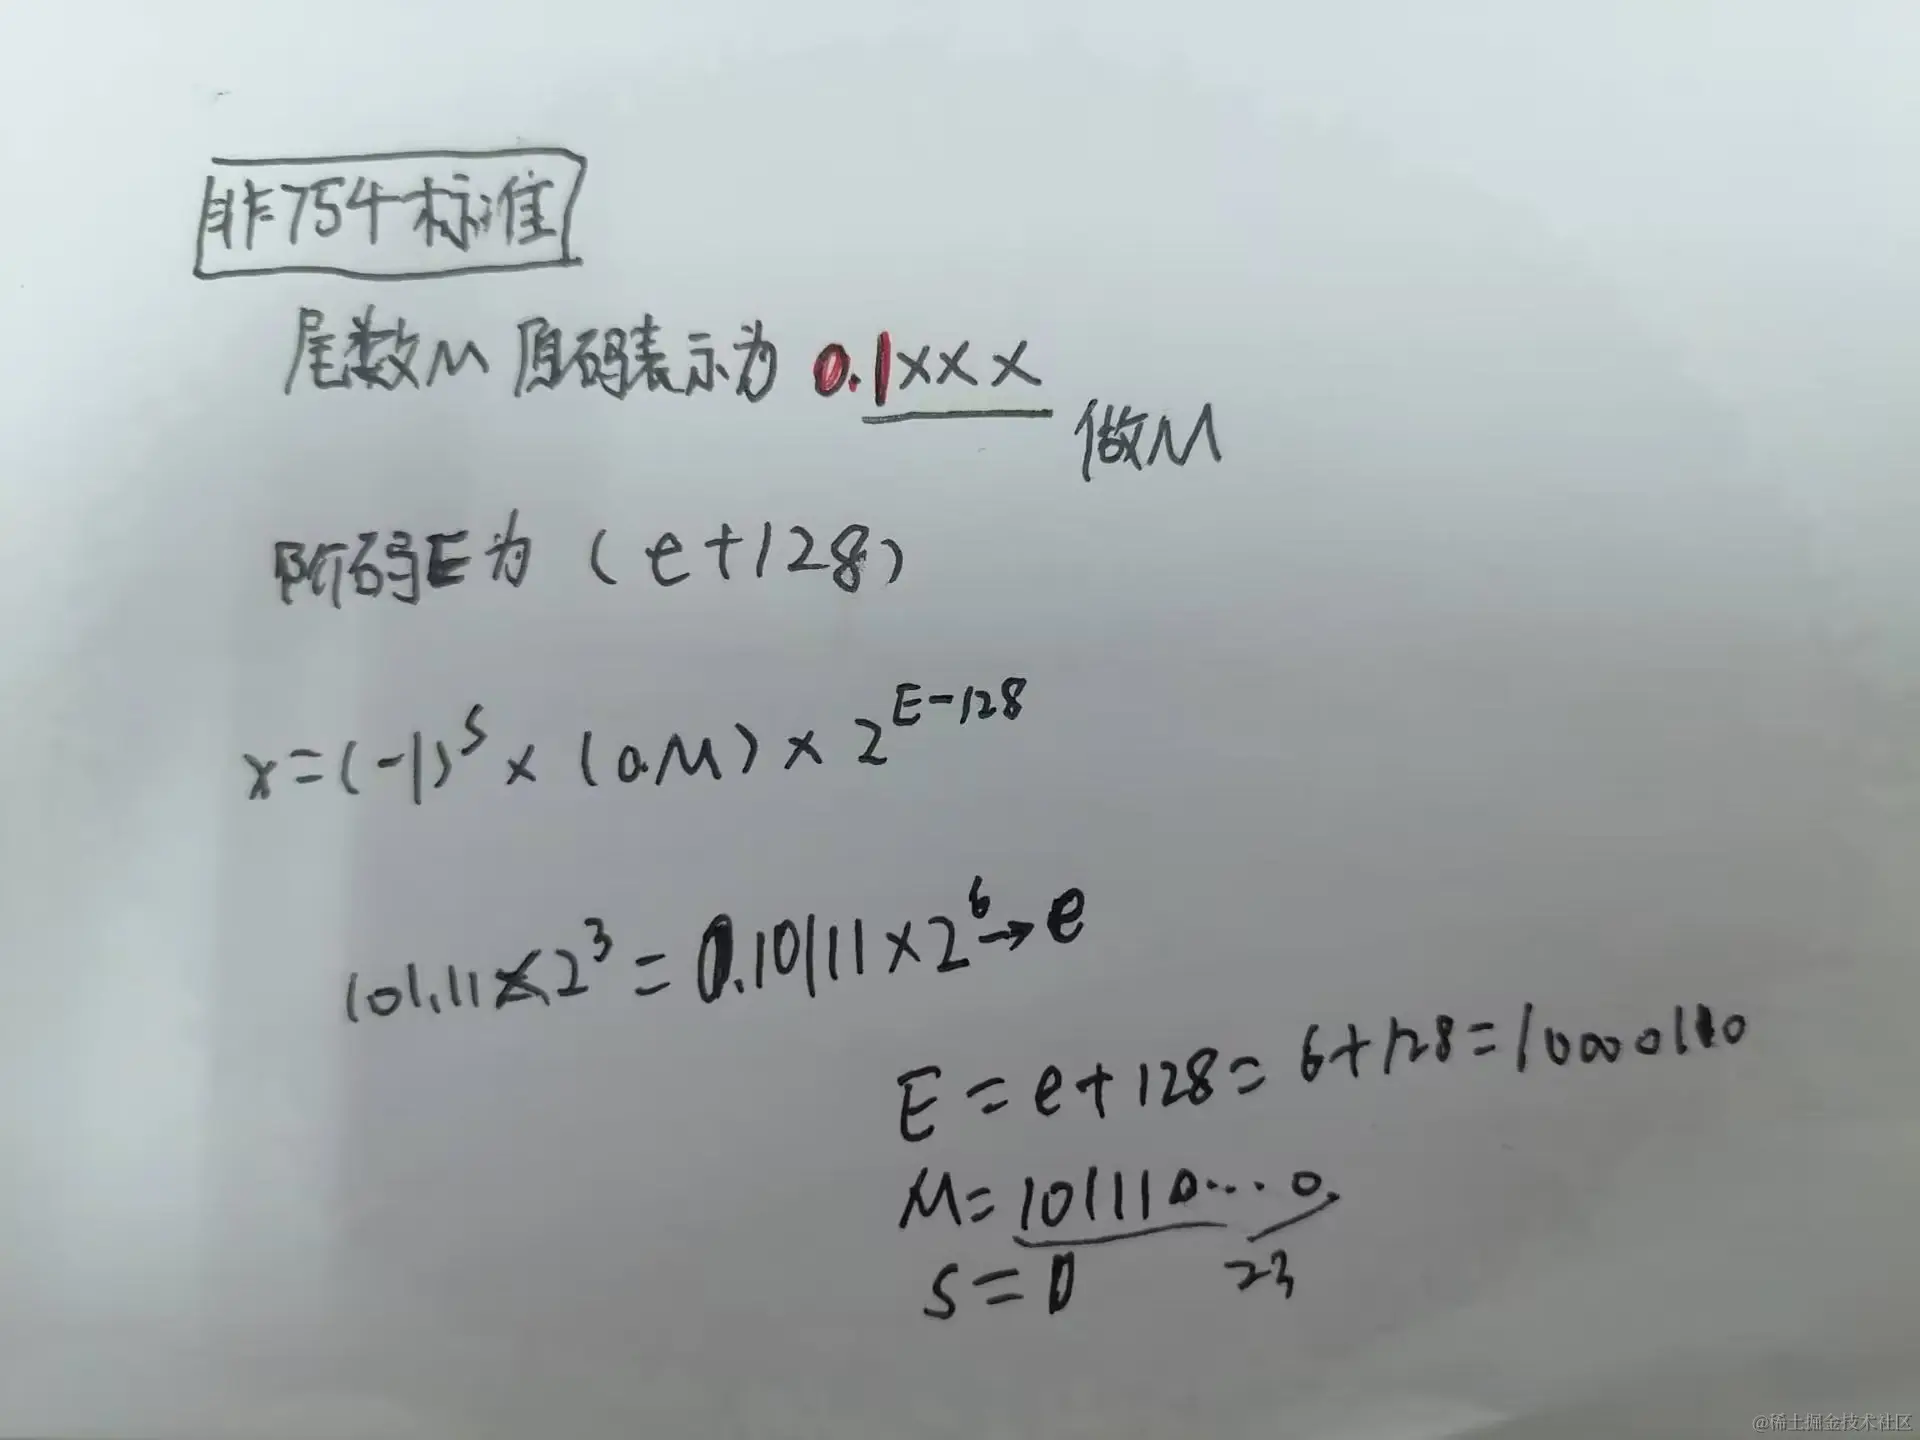 非754标准
尾数M 原码表示为 0.1xxx
做M
阶码E为 (e+128)
x=(-1)^s × (0.M) × 2^{E-128}
101.11×2^3 = 0.10111×2^6 → e
E = e+128 = 6+128 = 10000110
M= 101110...0.
23
S=0
@稀土掘金技术社区